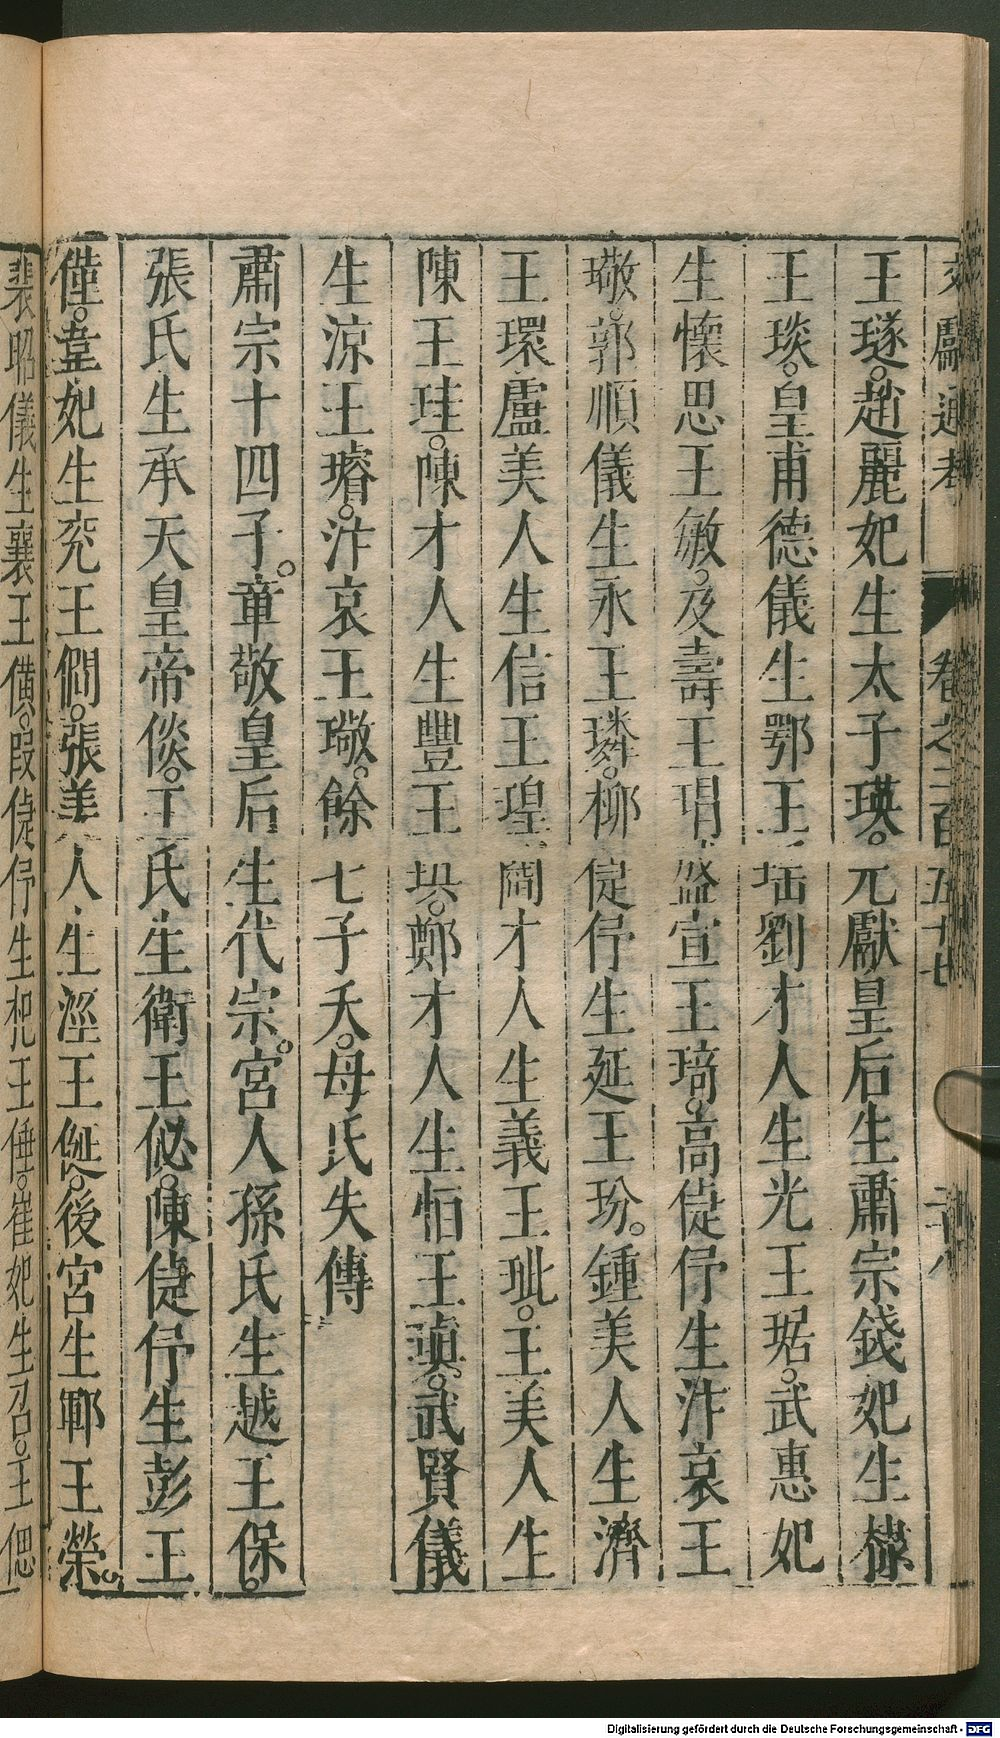 文獻通考 卷之二百五十七 二十八
王璲。趙麗妃生太子瑛。元獻皇后生肅宗錢妃生棣
王琰。皇甫德儀生鄂王瑤劉才人生光王琚。武惠妃
生懷思王敏。及壽王瑁盛宣王琦。高倢伃生汴哀王
璥。郭順儀生永王璘。柳倢伃生延王玢。鍾美人生濟
王環盧美人生信王瑝閻才人生義王玼。王美人生
陳王珪。陳才人生豐王珙。鄭才人生恒王瑱。武賢儀
生涼王璿。汴哀王璥。餘七子夭。母氏失傳
肅宗十四子。章敬皇后生代宗。宮人孫氏生越王保。
張氏生承天皇帝倓。王氏生衛王佖。陳倢伃生彭王
僅。韋妃生兖王僴。張美人生涇王侹。後宮生鄆王榮。
裴昭儀生襄王僙。段倢伃生杞王倕。崔妃生召。王偲
Digitalisierung gefördert durch die Deutsche Forschungsgemeinschaft - DFG